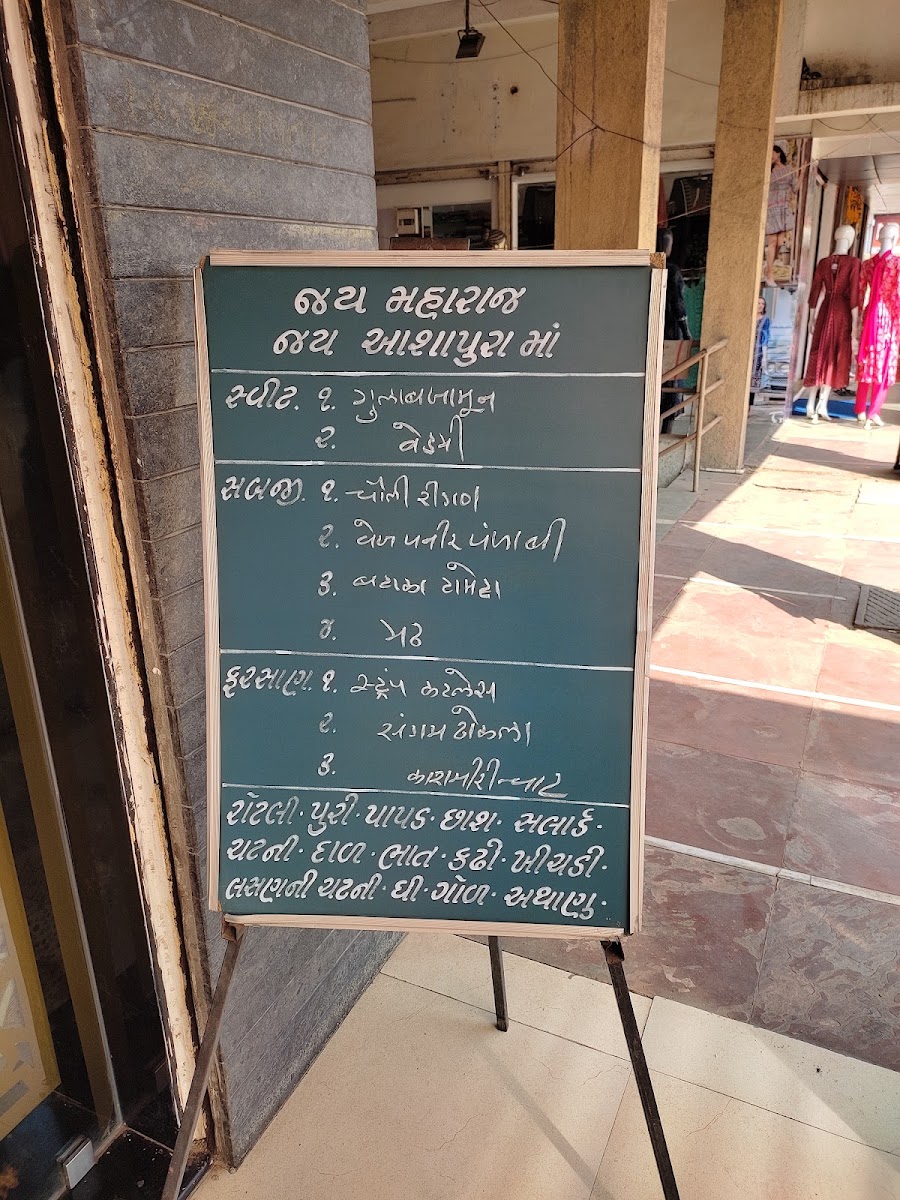 જય મહારાજ
જય આશાપુરા માં
સ્વીટ. ૧. ગુલાબજામૂન
૨. વેડમી
સબજી. ૧. ચૌલી રીંગણ
૨. વેજ પનીર પંજાબી
૩. બટાકા ટામેટા
૪. મઠ
ફરસાણ. ૧. સ્ટ્રીપ કટલેસ
૨. સેંડામ ઢોકલા
૩. કાશમીરી ચાટ
રોટલી · પુરી · પાપડ · છાશ · સલાર્ડ ·
ચટની · દાળ · ભાત · કઢી · ખીચડી ·
લસણની ચટની · ઘી · ગોળ · અથાણુ ·